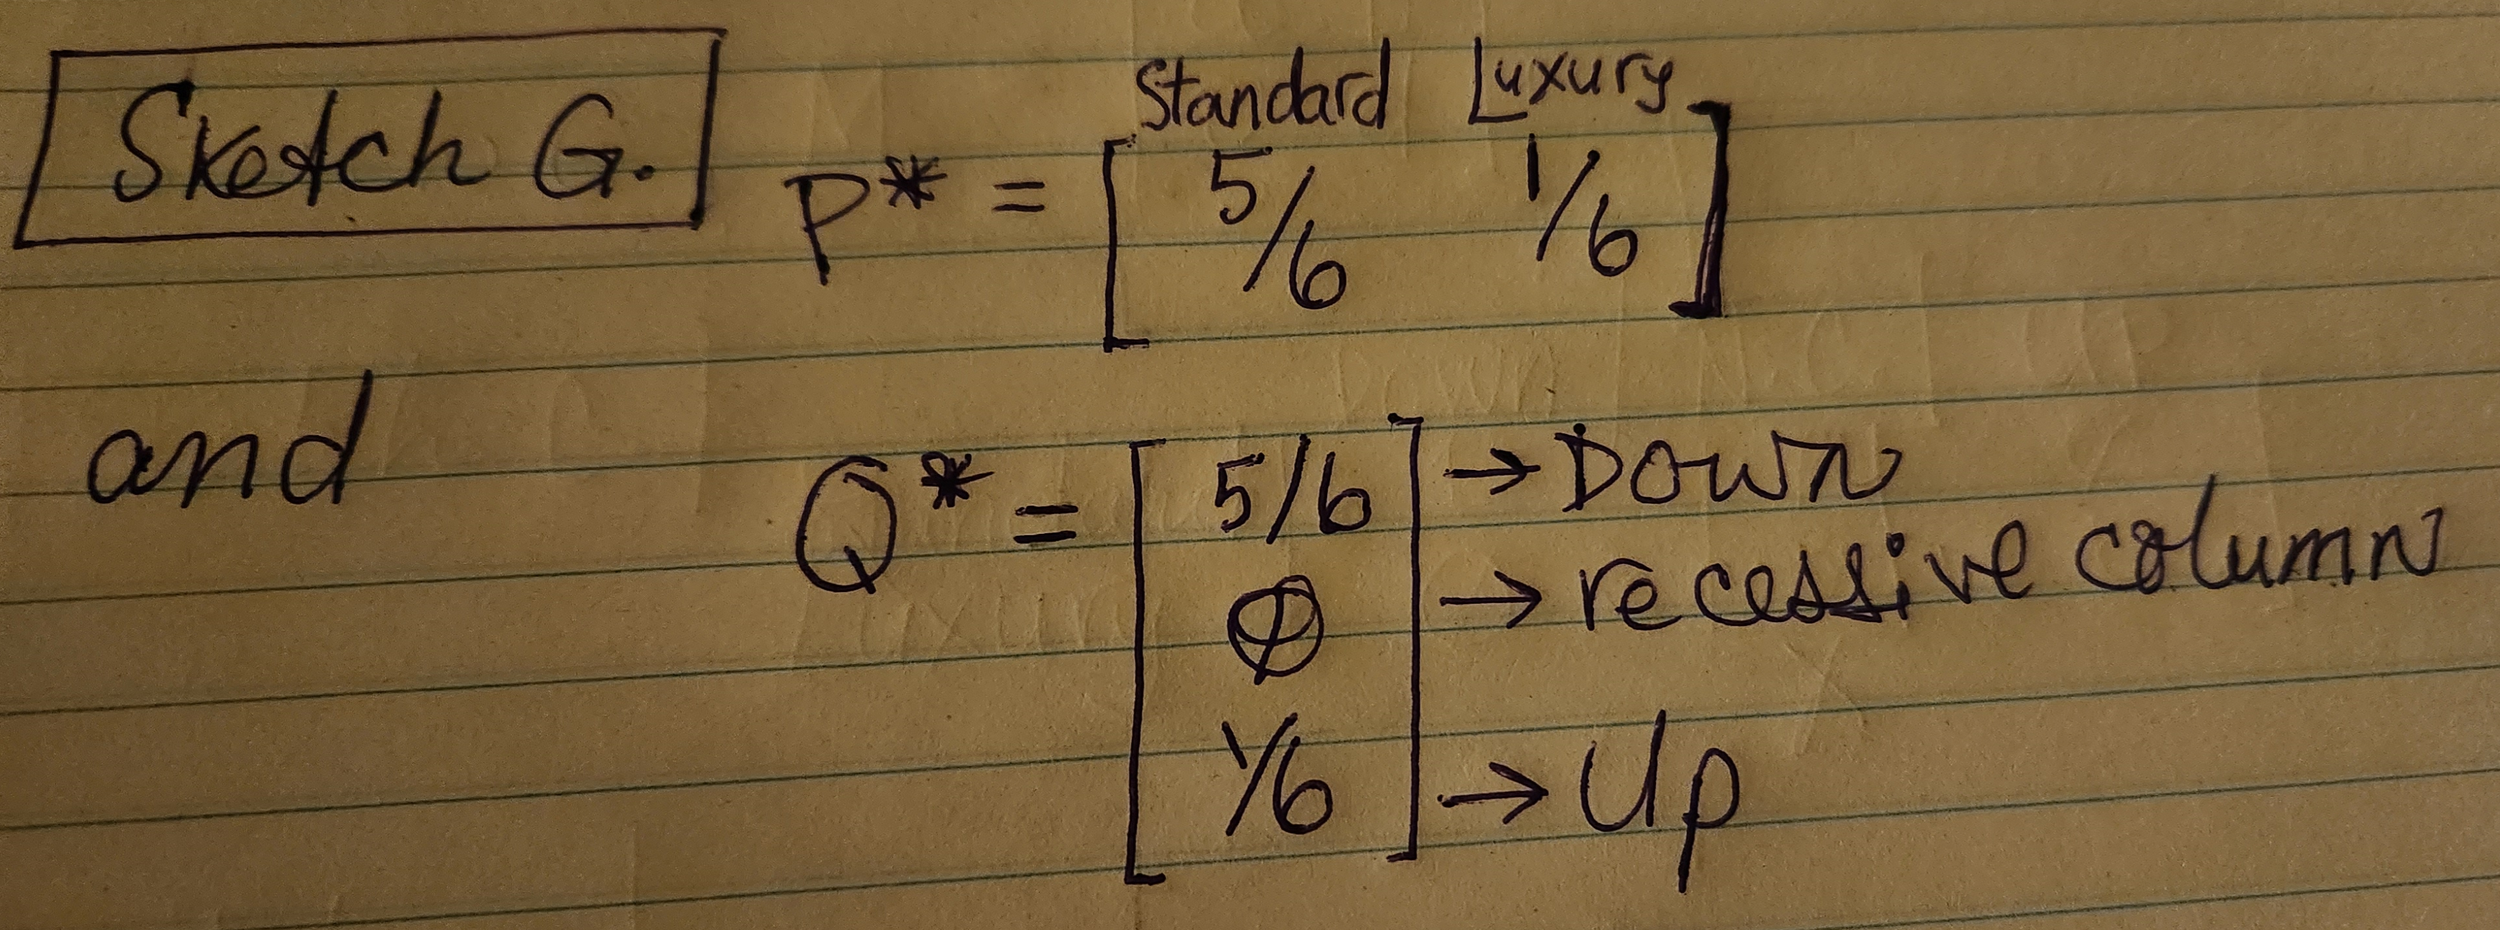 Sketch G.
Standard Luxury
P* = [ 5/6 1/6 ]
and
Q* = [ 5/6 ] → Down
∅ → recessive column
1/6 → Up